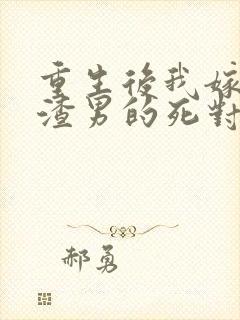 重生後我嫁
渣男的死對
郝勇